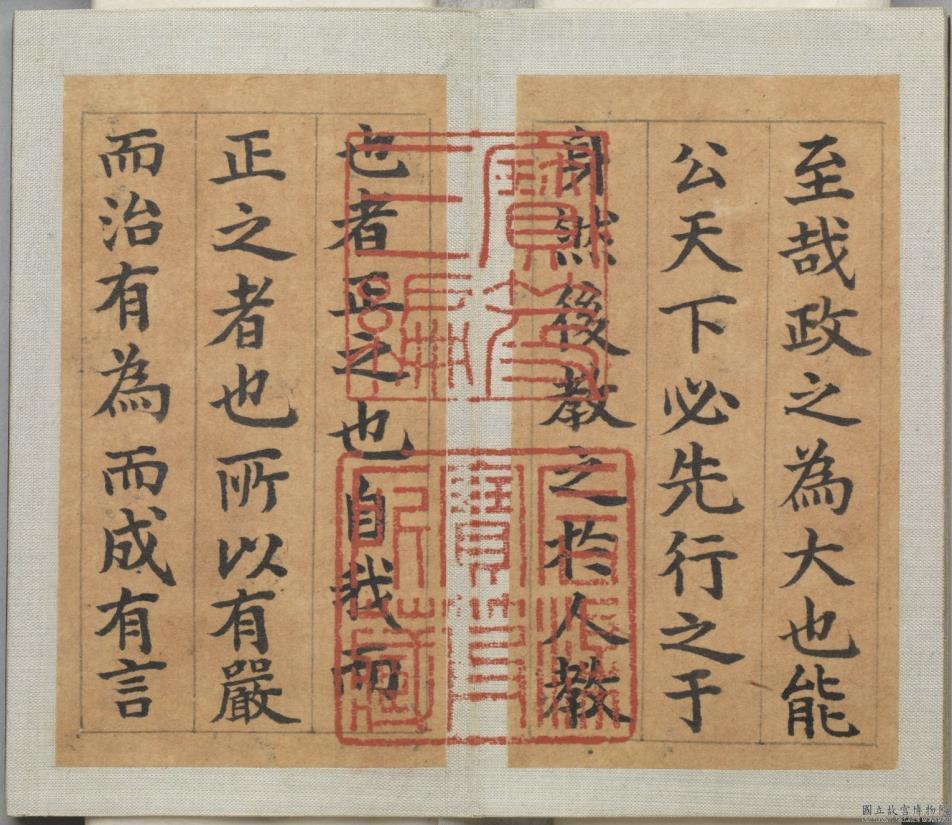 至哉政之為大也能
公天下必先行之于
身然後教之於人教
也者正之也自我而
正之者也所以有嚴
而治有為而成有言
國立故宮博物院